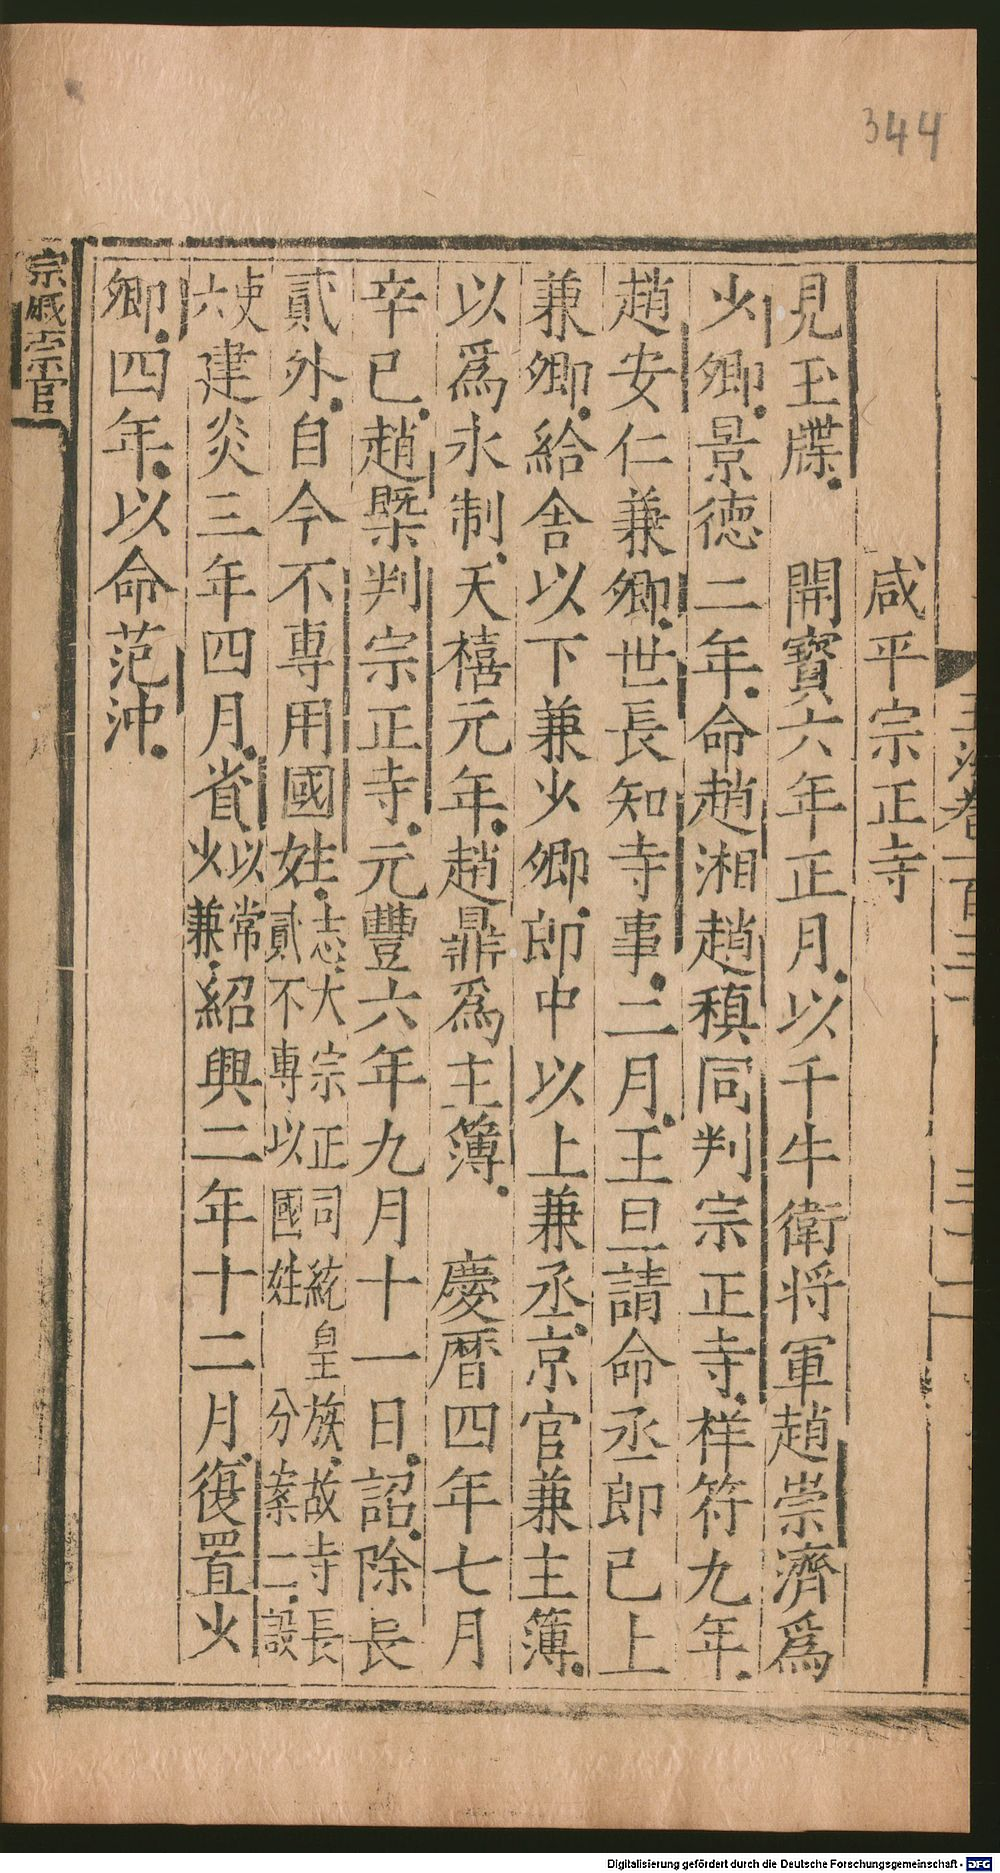 344
咸平宗正寺
見玉牒　開寶六年正月以千牛衛将軍趙崇濟爲
少卿景德二年命趙湘趙稹同判宗正寺祥符九年
趙安仁兼卿世長知寺事二月王旦請命丞郎已上
兼卿給舍以下兼少卿郎中以上兼丞京官兼主簿
以爲永制天禧元年趙鼎爲主簿　慶曆四年七月
辛已趙槩判宗正寺元豐六年九月十一日詔除長
貳外自今不專用國姓志大宗正司統皇族故寺長貳不專以國姓　分案二設
吏六建炎三年四月省以常少兼紹興二年十二月復置少
卿四年以命范沖
宗戚崇官
Digitalisierung gefördert durch die Deutsche Forschungsgemeinschaft - DFG